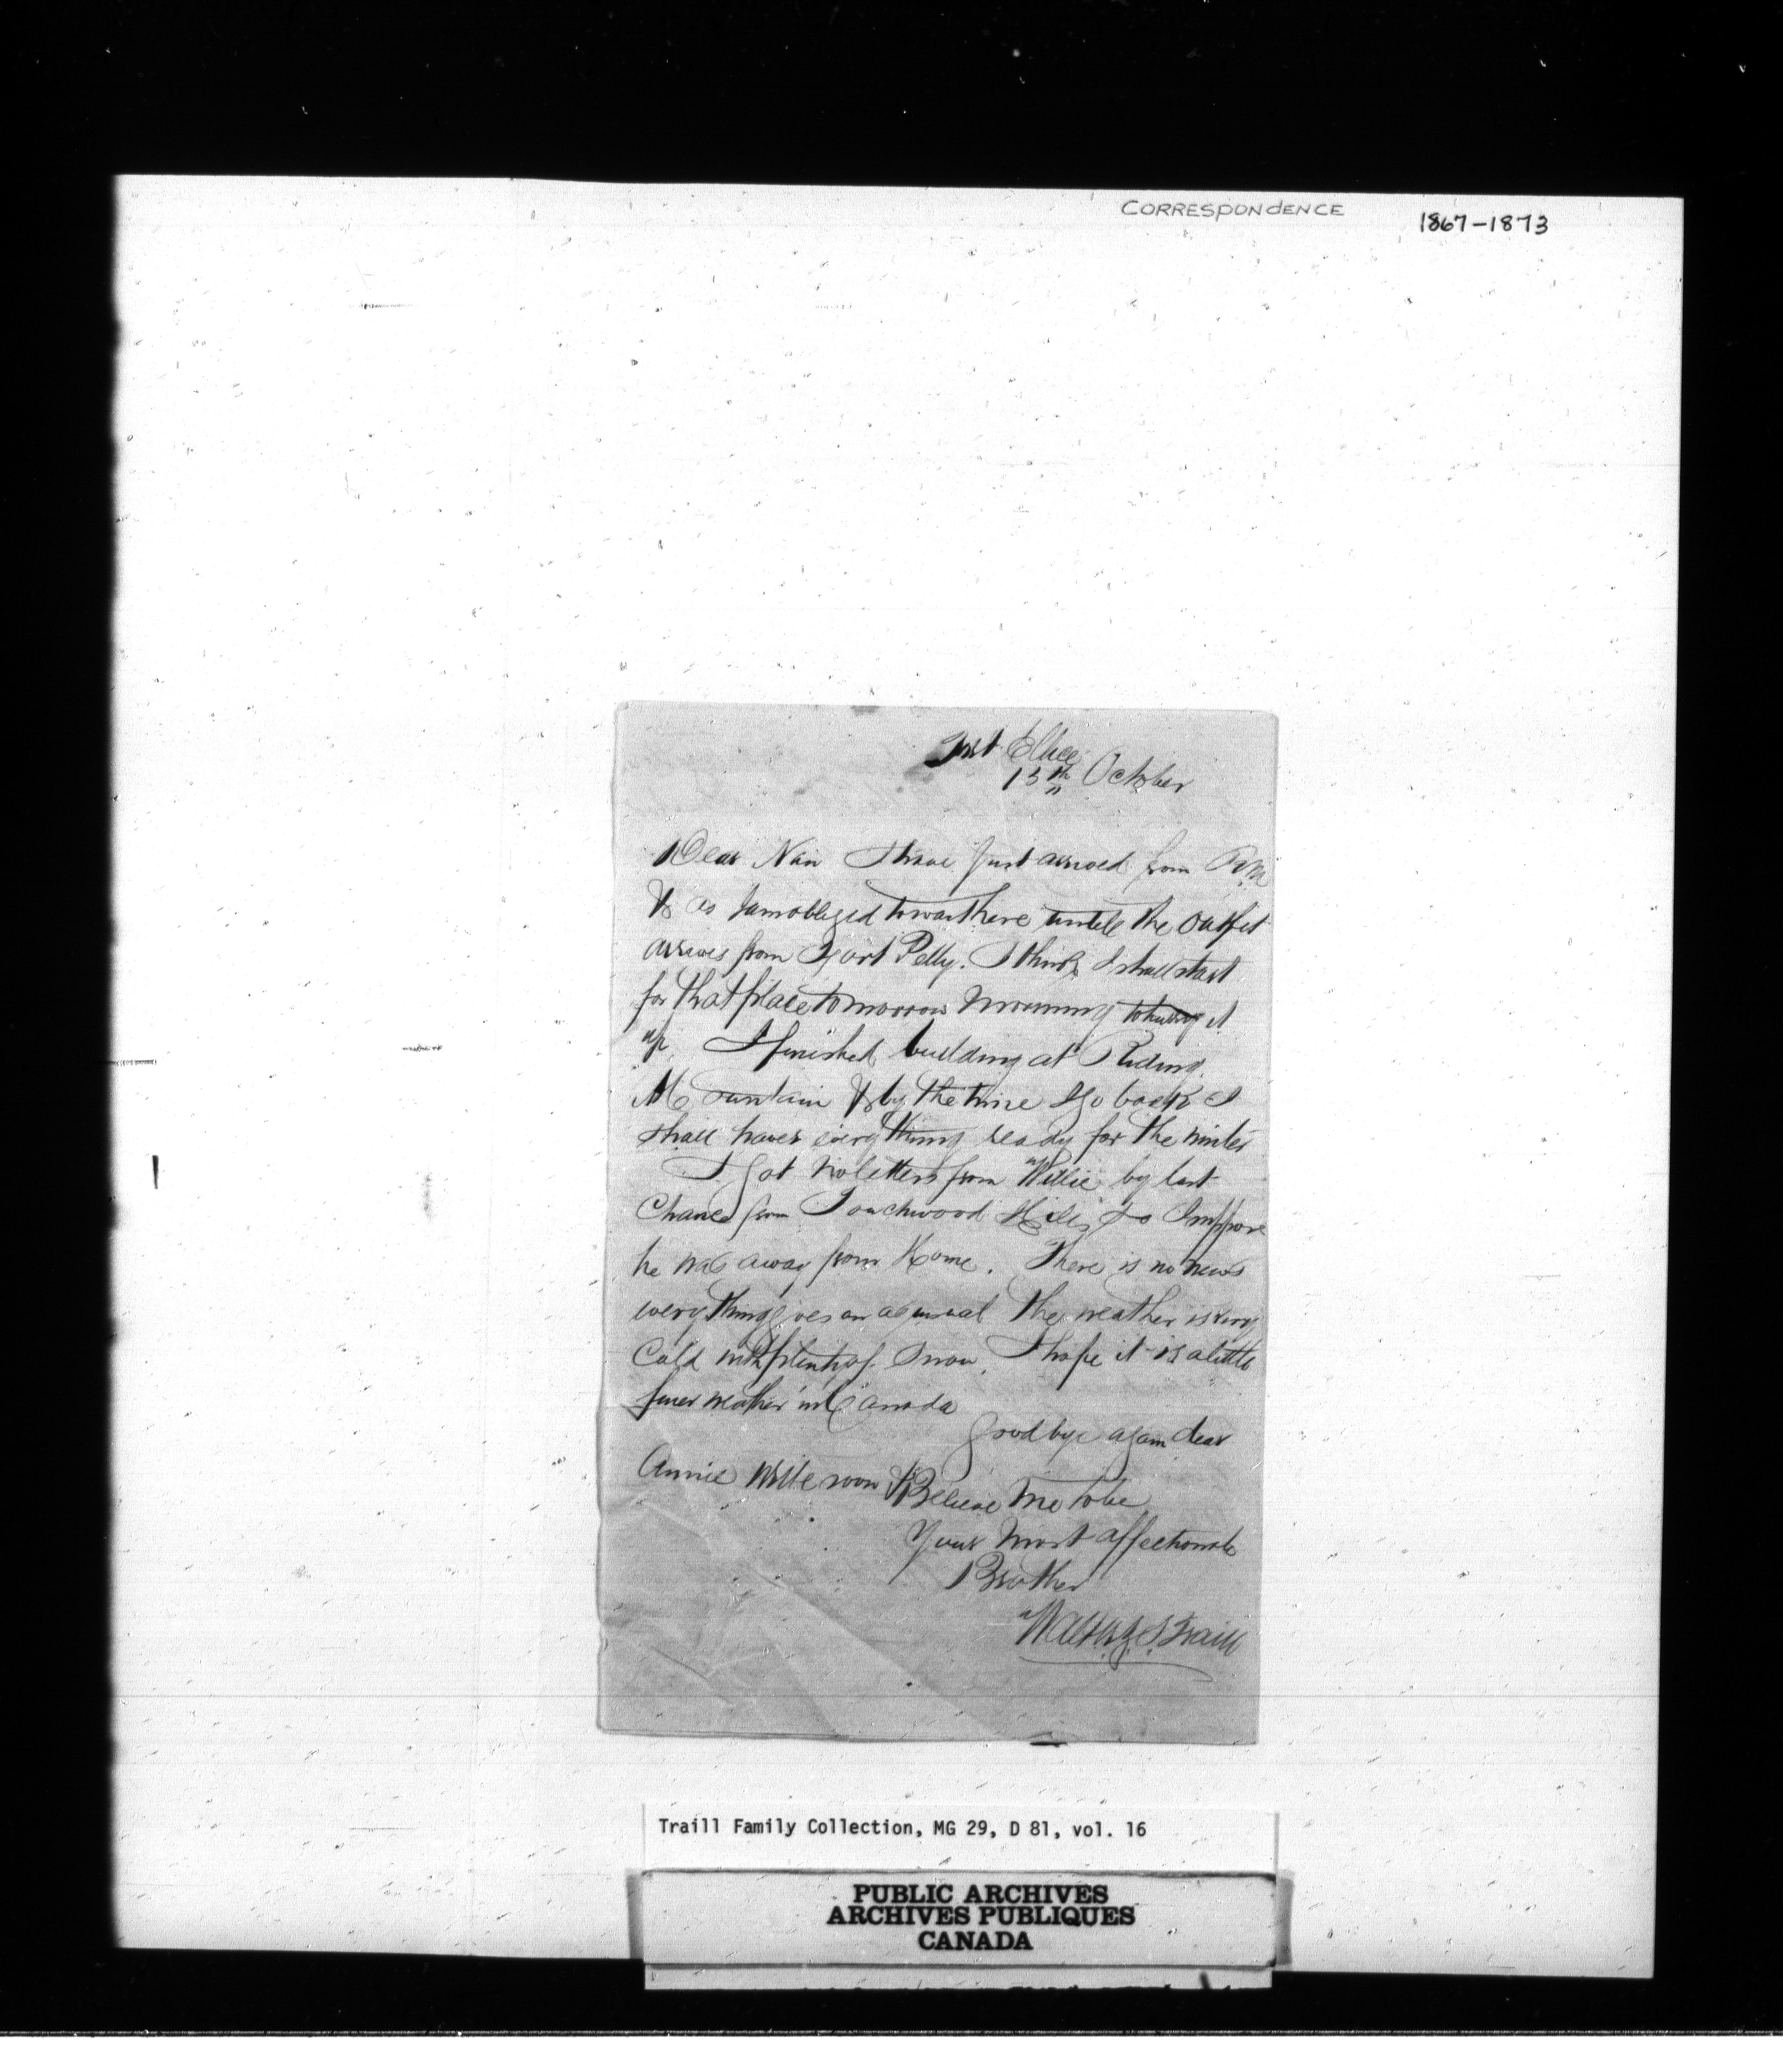 CORRESPONDENCE 1867-1873
Fort Ellice
13th October
Dear Nan I have just arrived from R.M.
& as I am obliged to wait here untill the outfit
arrives from Fort Pelly. I think I shall start
for that place tomorrow morning to hurry it
up. I finished building at Riding
Mountain & by the time I go back I
shall have everything ready for the winter
I got no letters from Willie by last
Chance from Touchwood Hills so I suppose
he was away from Home. There is no news
everything goes on as usual The weather is very
Cold with plenty of Snow. I hope it is a little
finer weather in Canada
Goodbye again dear
Annie Write soon & Believe me to be
Your most affectionate
Brother
Walter J. S. Traill
Traill Family Collection, MG 29, D 81, vol. 16
PUBLIC ARCHIVES
ARCHIVES PUBLIQUES
CANADA